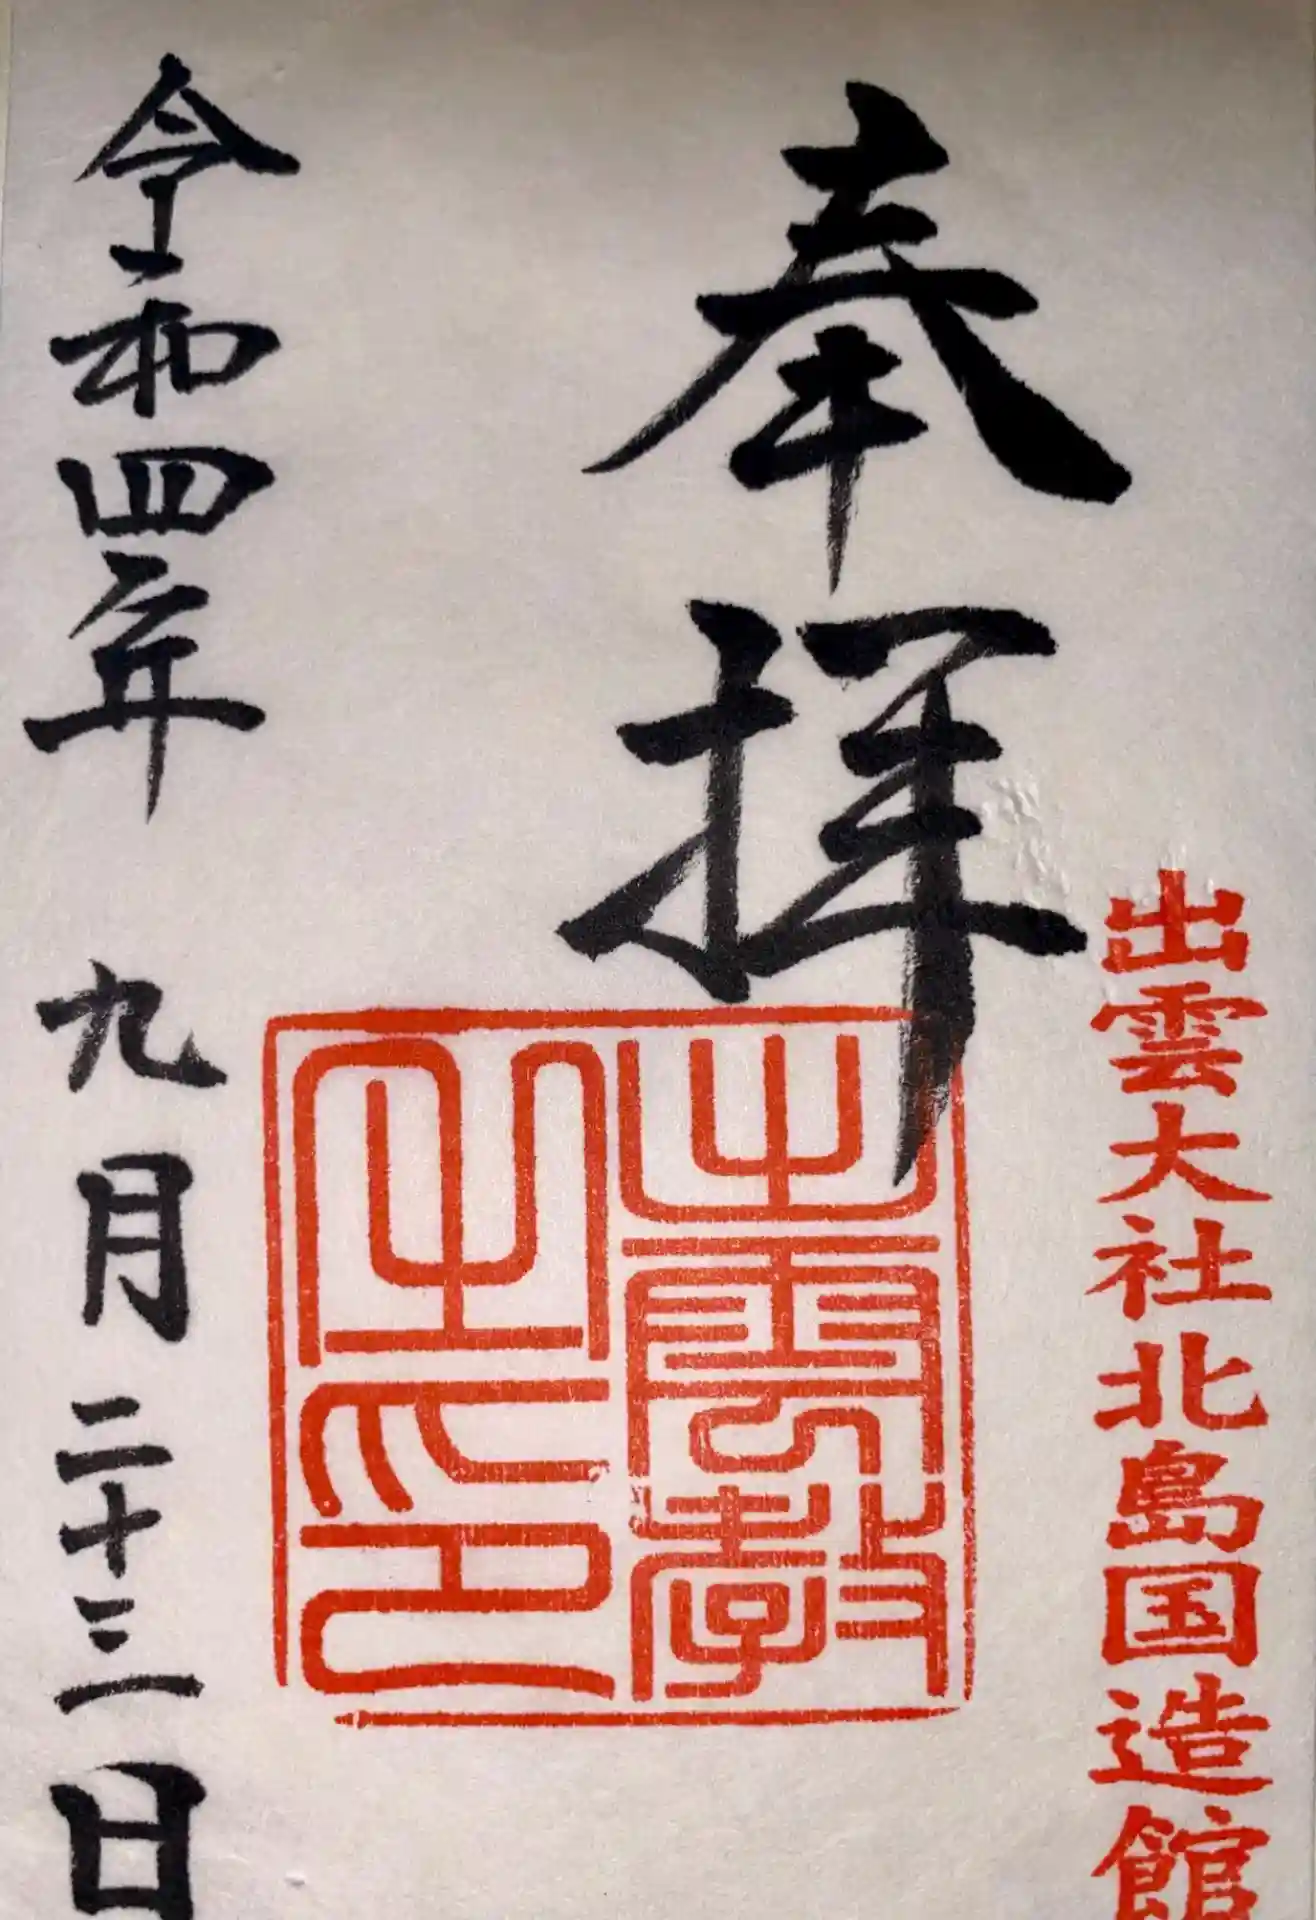 奉拝
出雲大社北島国造館
出雲教
之印
令和四年 九月二十三日